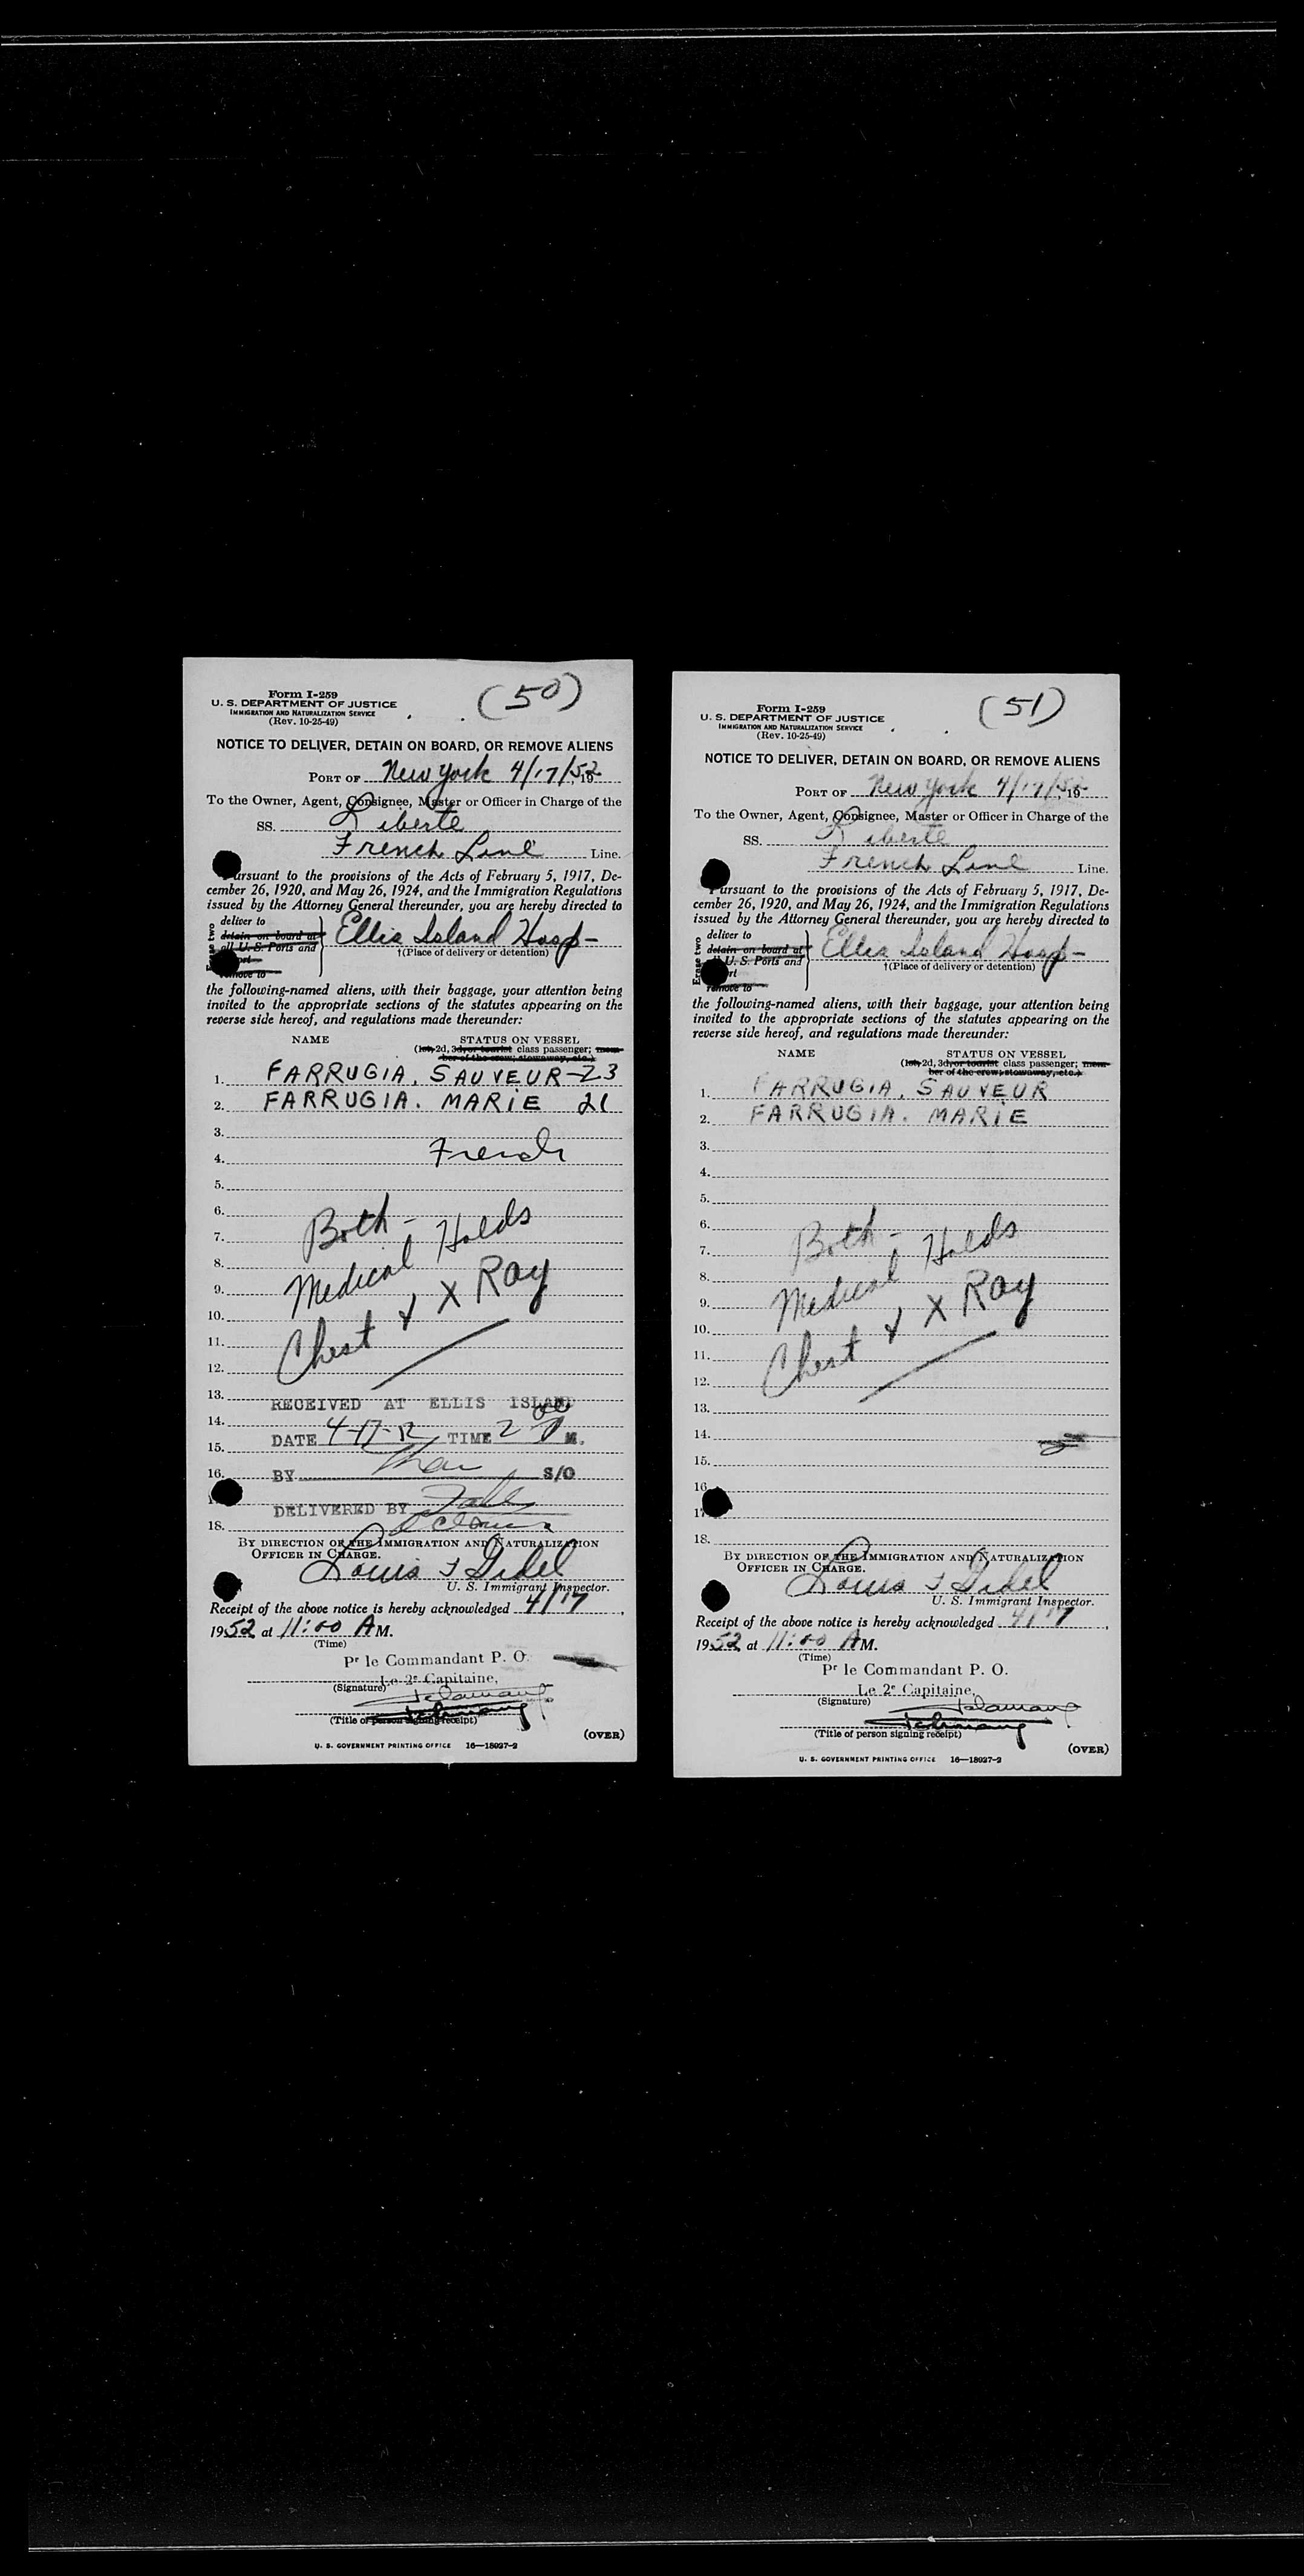 (50)
Form I-259
U. S. DEPARTMENT OF JUSTICE
IMMIGRATION AND NATURALIZATION SERVICE
(Rev. 10-25-49)
NOTICE TO DELIVER, DETAIN ON BOARD, OR REMOVE ALIENS
PORT OF New York 4/17/52, 19
To the Owner, Agent, Consignee, Master or Officer in Charge of the
SS. Liberte
French Line Line.
Pursuant to the provisions of the Acts of February 5, 1917, De-
cember 26, 1920, and May 26, 1924, and the Immigration Regulations
issued by the Attorney General thereunder, you are hereby directed to
deliver to
detain on board at
all U. S. Ports and
remove to
Ellis Island Hosp-
†(Place of delivery or detention)
the following-named aliens, with their baggage, your attention being
invited to the appropriate sections of the statutes appearing on the
reverse side hereof, and regulations made thereunder:
NAME STATUS ON VESSEL
(1st, 2d, 3d, or tourist class passenger; mem-
ber of the crew; stowaway, etc.)
1. FARRUGIA, SAUVEUR-23
2. FARRUGIA. MARIE 21
3.
4. French
5.
6.
7. Both - Holds
8.
9. Medical
10. X Ray
11. Chest
12.
13.
RECEIVED AT ELLIS ISLAND
14.
DATE 4-17-52 TIME 2 00 M.
15.
16. BY S/O
DELIVERED BY
18.
BY DIRECTION OF THE IMMIGRATION AND NATURALIZATION
OFFICER IN CHARGE.
Louis J Gidel
U. S. Immigrant Inspector.
Receipt of the above notice is hereby acknowledged 4/17,
1952 at 11:00 AM.
(Time)
Pr le Commandant P. O.
Le 2e Capitaine,
(Signature)
(Title of person signing receipt)
(OVER)
U. S. GOVERNMENT PRINTING OFFICE 16—18027-2
(51)
Form I-259
U. S. DEPARTMENT OF JUSTICE
IMMIGRATION AND NATURALIZATION SERVICE
(Rev. 10-25-49)
NOTICE TO DELIVER, DETAIN ON BOARD, OR REMOVE ALIENS
PORT OF New York 4/17/52, 19
To the Owner, Agent, Consignee, Master or Officer in Charge of the
SS. Liberte
French Line Line.
Pursuant to the provisions of the Acts of February 5, 1917, De-
cember 26, 1920, and May 26, 1924, and the Immigration Regulations
issued by the Attorney General thereunder, you are hereby directed to
Erase two
deliver to
detain on board at
U. S. Ports and
remove to
Ellis Island Hosp-
†(Place of delivery or detention)
the following-named aliens, with their baggage, your attention being
invited to the appropriate sections of the statutes appearing on the
reverse side hereof, and regulations made thereunder:
NAME STATUS ON VESSEL
(1st, 2d, 3d, or tourist class passenger; mem-
ber of the crew; stowaway, etc.)
1. FARRUGIA, SAUVEUR
2. FARRUGIA. MARIE
3.
4.
5.
6.
7. Both - Holds
8.
9. Medical
10. X Ray
11. Chest
12.
13.
14.
15.
16.
17.
18.
BY DIRECTION OF THE IMMIGRATION AND NATURALIZATION
OFFICER IN CHARGE.
Louis J Gidel
U. S. Immigrant Inspector.
Receipt of the above notice is hereby acknowledged 4/17,
1952 at 11:00 AM.
(Time)
Pr le Commandant P. O.
Le 2e Capitaine,
(Signature)
(Title of person signing receipt)
(OVER)
U. S. GOVERNMENT PRINTING OFFICE 16—18027-2